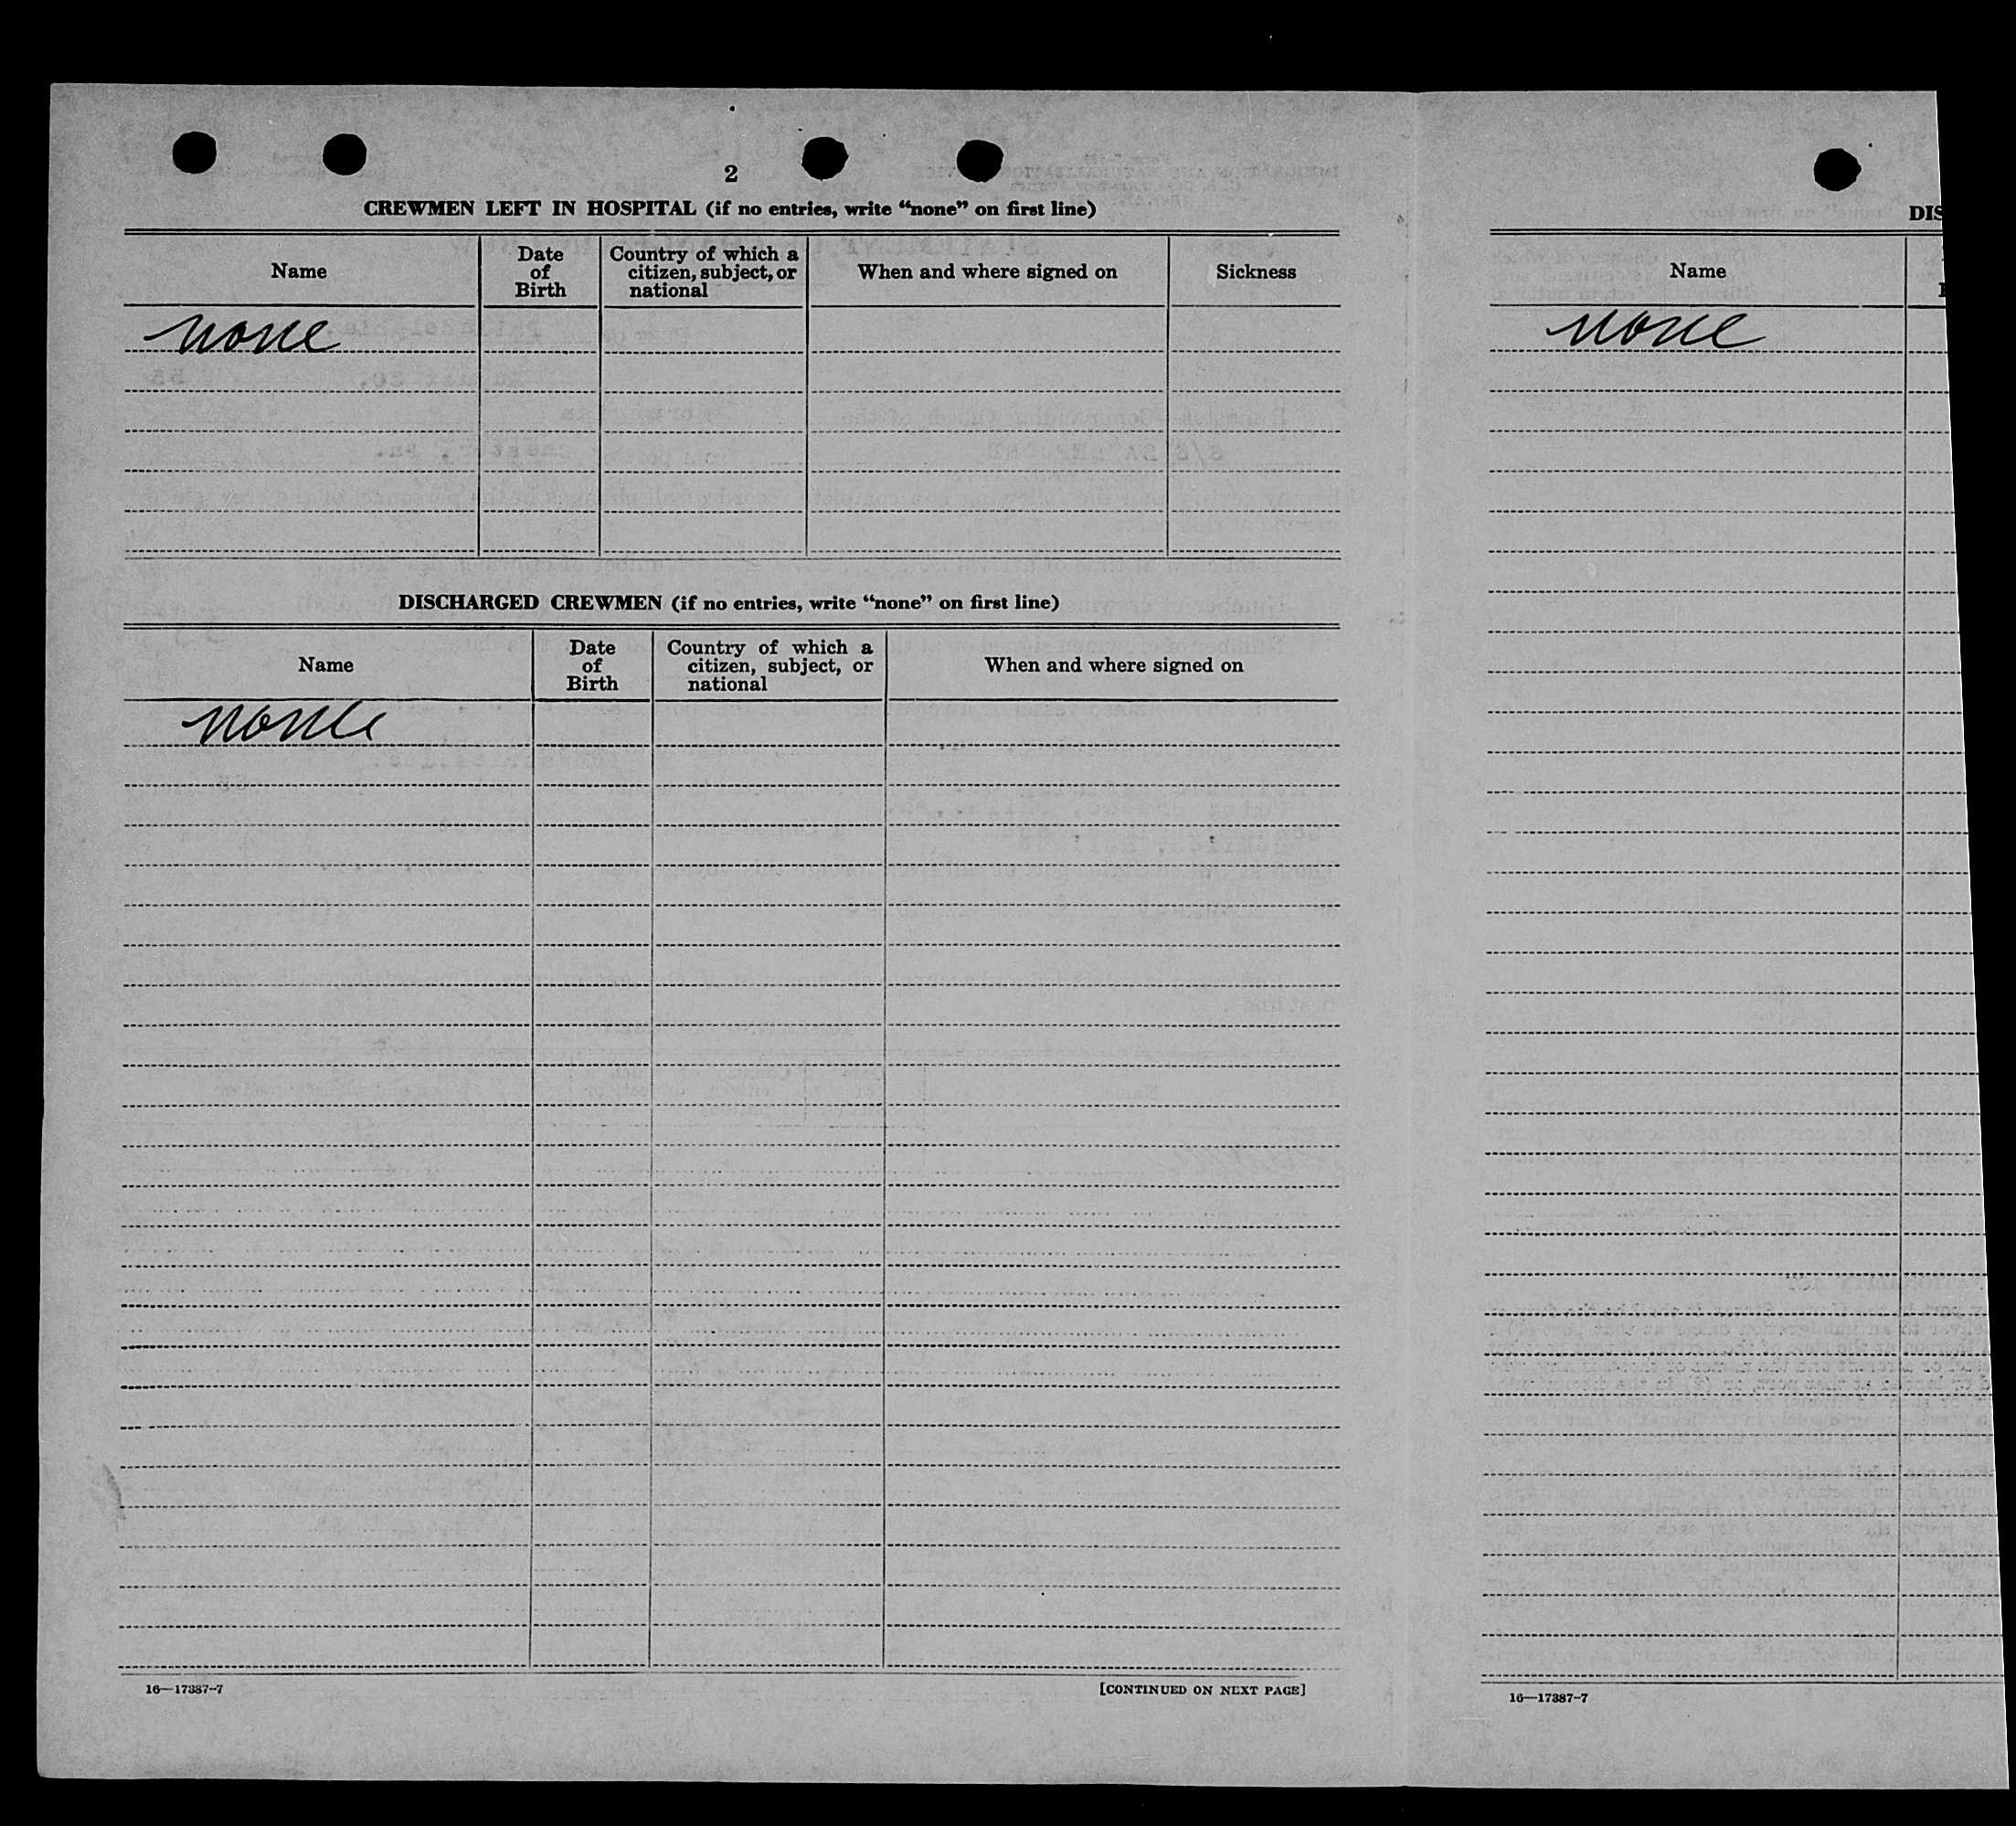 2
CREWMEN LEFT IN HOSPITAL (if no entries, write “none” on first line)
Name
Date of Birth
Country of which a citizen, subject, or national
When and where signed on
Sickness
none
DISCHARGED CREWMEN (if no entries, write “none” on first line)
Name
Date of Birth
Country of which a citizen, subject, or national
When and where signed on
none
16—17387-7
[CONTINUED ON NEXT PAGE]
DIS
Name
none
16—17387-7